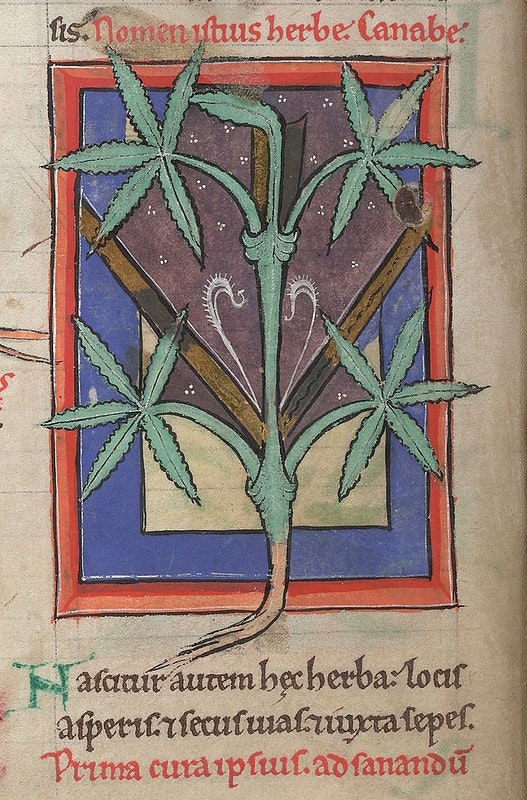 sis. Nomen istius herbe Canabe:
Nascitur autem hęc herba: locis
asperis. ⁊ secus uias. ⁊ iuxta sepes.
Prima cura ipsius. ad sanandū